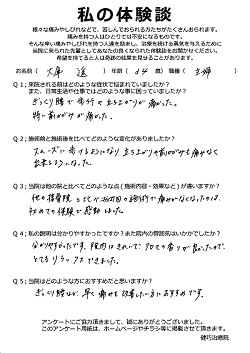 私の体験談
様々な痛みやしびれなどで、苦しんでおられる方たちがたくさんおられます。
痛みを持つ人はひとりでは不安になるものです。
そんな辛い痛みやしびれを持つ人達を励まし、治療を続ける勇気を与えるために
当院に来られた先輩としてあなたの良くなられた体験談をお聞かせください。
希望を持てると人は奇跡の結果を見せることがあります。
お名前（ 遥 ）年齢（ 24 歳）職種（ 主婦 ）
Q1；来院される前はどのような症状で悩まれていましたか？
また、日常生活や仕事ではどのような事に困っていましたか？
ぎっくり腰で歩行や立ち上がりが痛かった。
特に前かがみが痛かった。
Q2；施術前と施術後を比べてどのような変化がありましたか？
スムーズに歩けるようになり立ち上がりや前かがみも痛みなく
出来るようになった。
Q3；当院は他の院と比べてどのような点（施術内容・効果など）が違いますか？
他の接骨院と比べ初回の施術で痛みがなくなったのは、
初めての体験で感動しました。
Q4；私の説明は分かりやすかったですか？また院内の雰囲気はいかがでしたか？
分かりやすかったです。院内はきれいで、アロマの香りが良かったので、
とてもリラックスできました。
Q5；当院はどのような方におすすめだと思いますか？
ぎっくり腰など、早く痛みを改善したい方におすすめです。
アンケートにご協力頂きまして、誠にありがとうございました。
このアンケート用紙は、ホームページやチラシ等に掲載させて頂きます。
健巧治療院